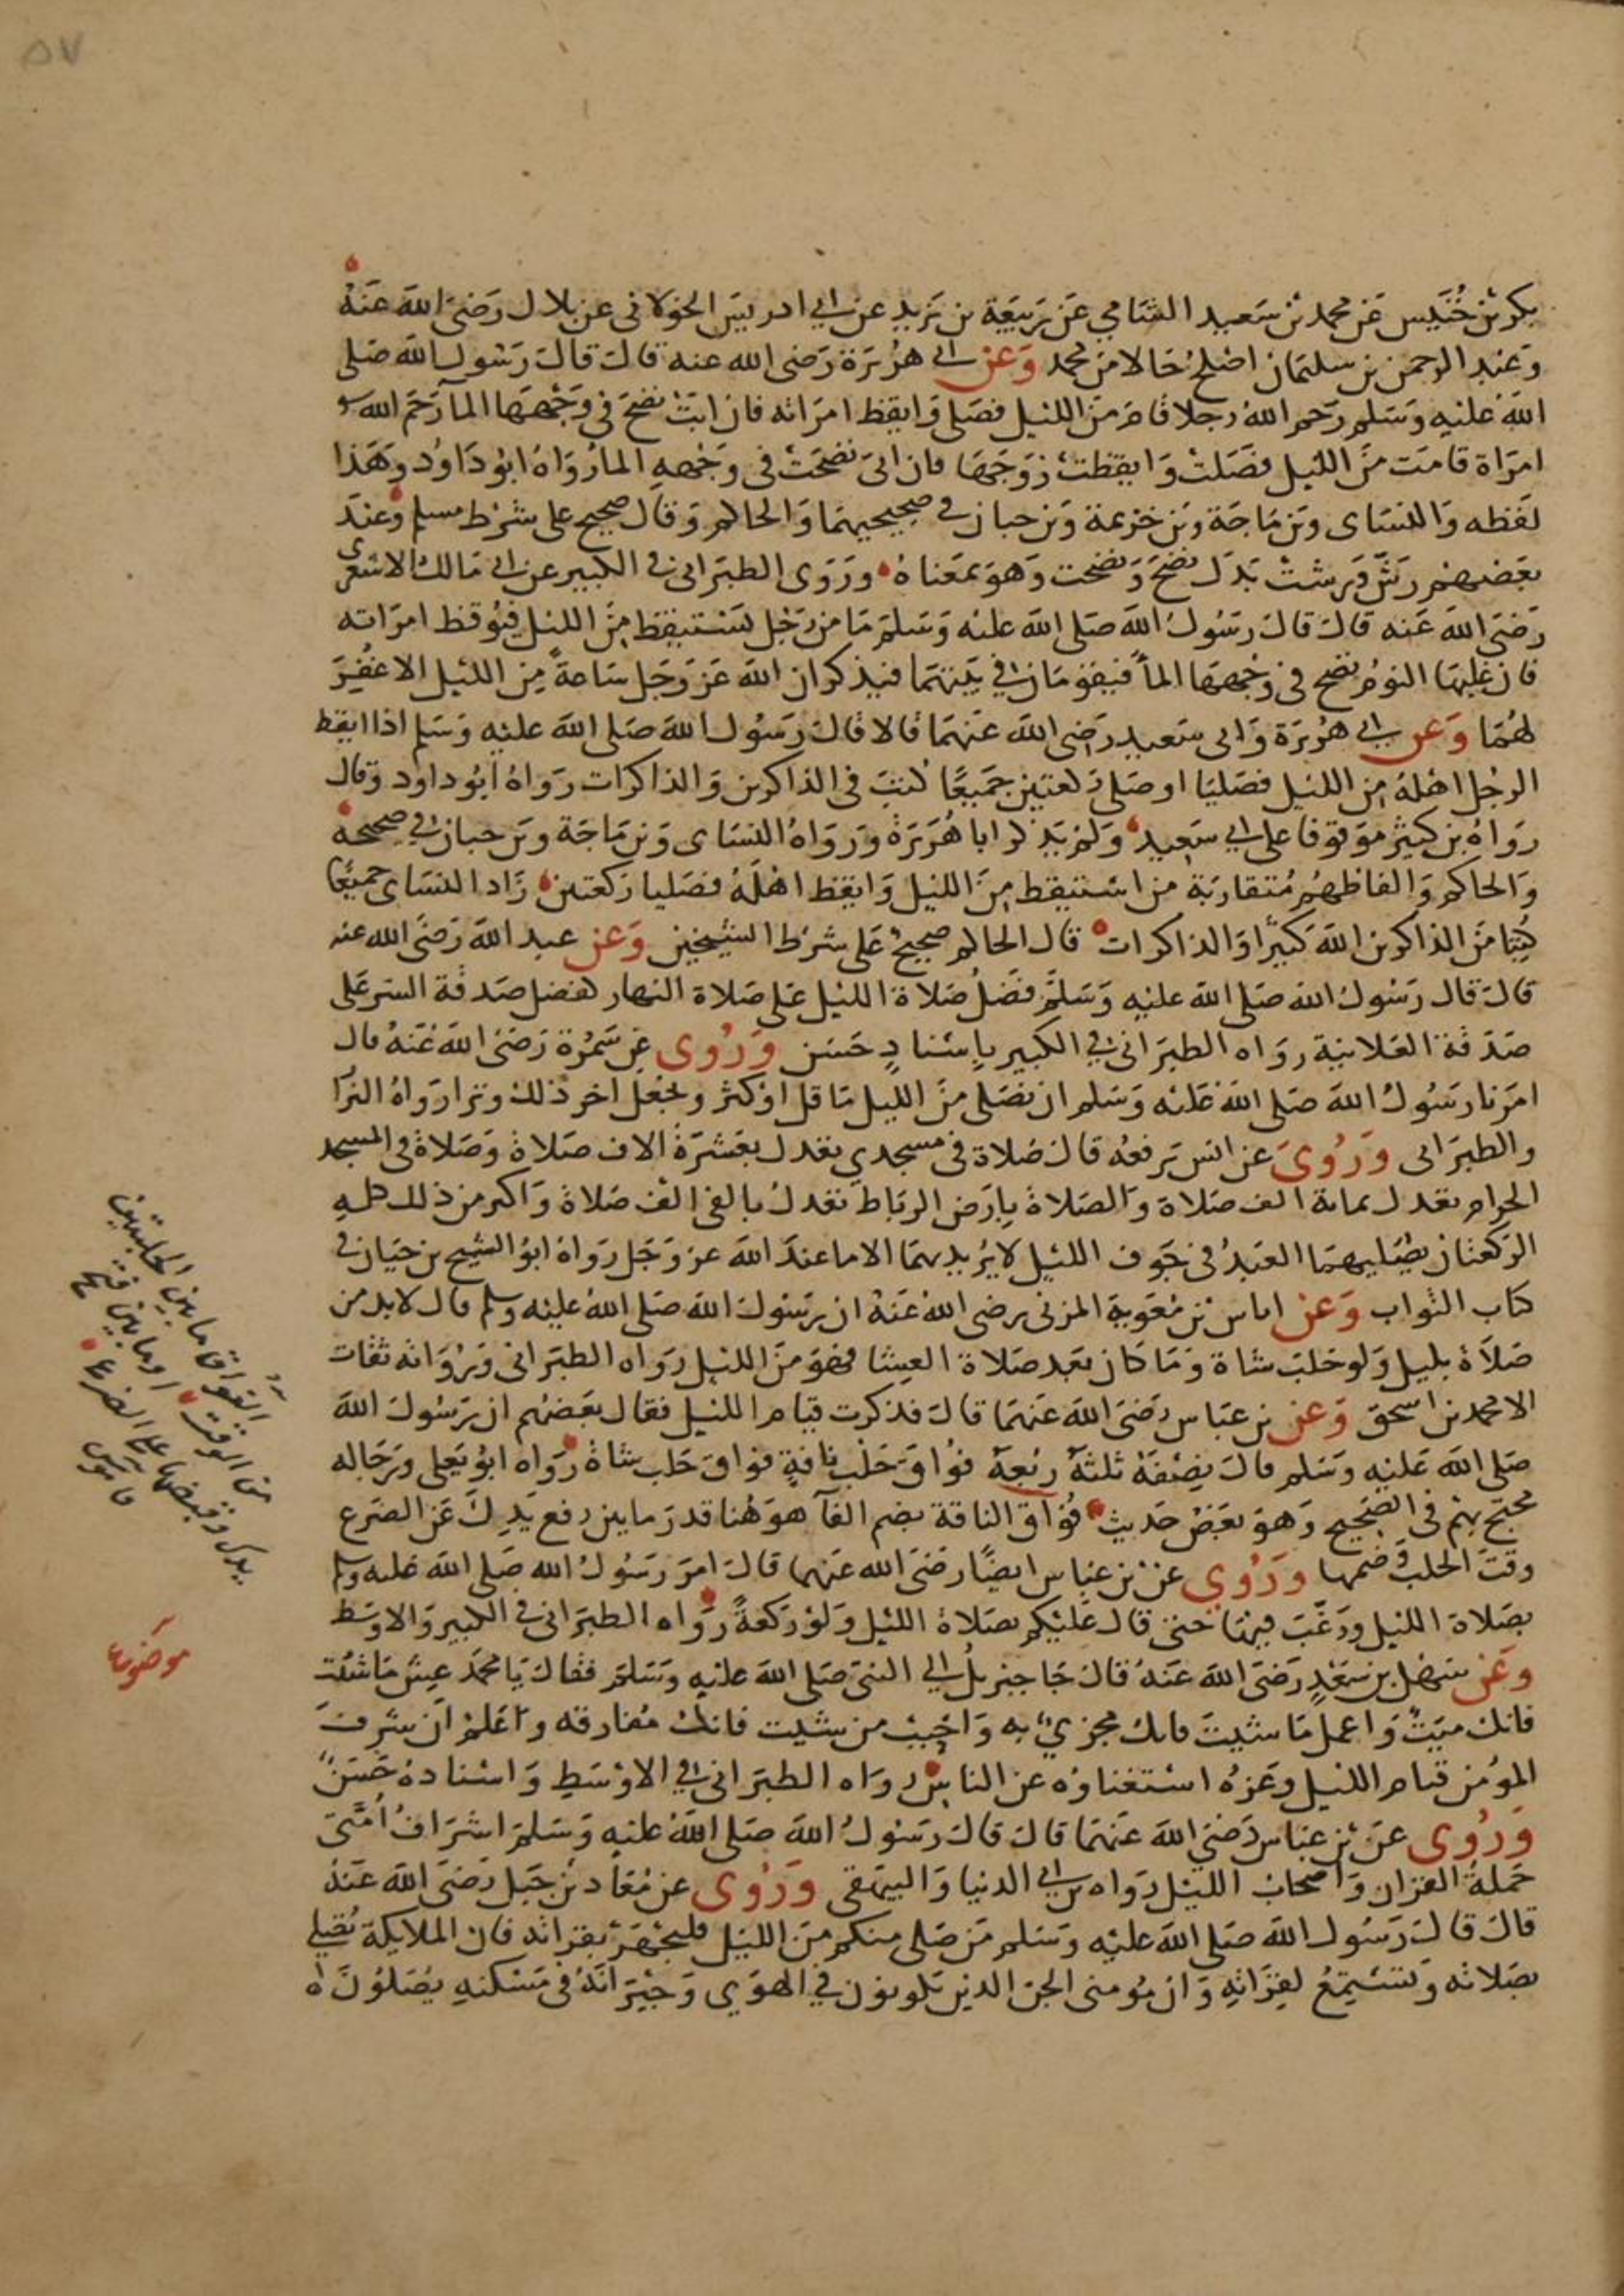 ٥٧
بكر بن خُنَيس عن محمد بن سعيد الشامي عن ربيعة بن يزيد عن ابي ادريس الخولاني عن بلال رضي الله عنه
وعبد الرحمن بن سليمان اصلح حالا من محمد وعن ابي هريرة رضي الله عنه قال قال رسول الله صلى
الله عليه وسلم رحم الله رجلا قام من الليل فصلى وايقظ امراته فان ابت نضح في وجهها الما رحم الله
امراة قامت من الليل فصلت وايقظت زوجها فان ابى نضحت في وجهه الما رواه ابو داود وهذا
لفظه والنساي وبن ماجة وبن خزيمة وبن حبان في صحيحيهما والحاكم وقال صحيح على شرط مسلم وعند
بعضهم رش ورشت بدل نضح ونضحت وهو بمعناه وروى الطبراني في الكبير عن ابي مالك الاشعري
رضي الله عنه قال قال رسول الله صلى الله عليه وسلم ما من رجل يستيقظ من الليل فيوقظ امراته
فان غلبها النوم نضح في وجهها الما فيقومان في بيتهما فيذكران الله عز وجل ساعة من الليل الا غفر
لهما وعن ابي هريرة وابي سعيد رضي الله عنهما قالا قال رسول الله صلى الله عليه وسلم اذا ايقظ
الرجل اهله من الليل فصليا او صلى ركعتين جميعا كتب في الذاكرين والذاكرات رواه ابو داود وقال
رواه بن كثير موقوفا على ابي سعيد ولم يذكر ابا هريرة ورواه النساي وبن ماجة وبن حبان في صحيحه
والحاكم والفاظهم متقاربة من استيقظ من الليل وايقظ اهله فصليا ركعتين زاد النساي جميعا
كتبا من الذاكرين الله كثيرا والذاكرات قال الحاكم صحيح على شرط الشيخين وعن عبد الله رضي الله عنه
قال قال رسول الله صلى الله عليه وسلم فضل صلاة الليل على صلاة النهار كفضل صدقة السر على
صدقة العلانية رواه الطبراني في الكبير باسناد حسن وروي عن سمرة رضي الله عنه قال
امرنا رسول الله صلى الله عليه وسلم ان نصلي من الليل ما قل او كثر ونجعل اخر ذلك وترا رواه البزا
والطبراني وروي عن انس يرفعه قال صلاة في مسجدي تعدل بعشرة الاف صلاة وصلاة في المسجد
الحرام تعدل بماية الف صلاة والصلاة بارض الرباط تعدل بالفي الف صلاة واكبر من ذلك كله
الركعتان يصليهما العبد في جوف الليل لا يريد بهما الا ما عند الله عز وجل رواه ابو الشيخ بن حيان في
كتاب الثواب وعن اياس بن معوية المزني رضي الله عنه ان رسول الله صلى الله عليه وسلم قال لا بد من
صلاة بليل ولو حلب شاة وما كان بعد صلاة العشا فهو من الليل رواه الطبراني ورواته ثقات
الا محمد بن اسحق وعن بن عباس رضي الله عنهما قال فذكرت قيام الليل فقال بعضهم ان رسول الله
صلى الله عليه وسلم قال نصفه ثلثه ربعه فواق حلب ناقة فواق حلب شاة رواه ابو يعلى ورجاله
محتج بهم في الصحيح وهو بعض حديث فواق الناقة بضم الفا هو هنا قدر ما بين رفع يدك عن الضرع
وقت الحلب وضمها وروي عن بن عباس ايضا رضي الله عنهما قال امر رسول الله صلى الله عليه وسلم
بصلاة الليل ورغب فيها حتى قال عليكم بصلاة الليل ولو ركعة رواه الطبراني في الكبير والاوسط
وعن سهل بن سعد رضي الله عنه قال جا جبريل الى النبي صلى الله عليه وسلم فقال يا محمد عش ما شئت
فانك ميت واعمل ما شيت فانك مجزي به واحبب من شيت فانك مفارقه واعلم ان شرف
المومن قيام الليل وعزه استغناوه عن الناس رواه الطبراني في الاوسط واسناده حسن
وروي عن بن عباس رضي الله عنهما قال قال رسول الله صلى الله عليه وسلم اشراف امتي
حملة القران واصحاب الليل رواه بن ابي الدنيا والبيهقي وروي عن معاذ بن جبل رضي الله عنه
قال قال رسول الله صلى الله عليه وسلم من صلى منكم من الليل فليجهر بقراته فان الملايكة تصلي
بصلاته وتستمع لقراته وان مومني الجن الذين يكونون في الهوي وجيرانه في مسكنه يصلون
الفواق ما بين الحلبتين
من الوقت او ما بين فتح
يدك وقبضها على الضرع
قاموس
موضوع